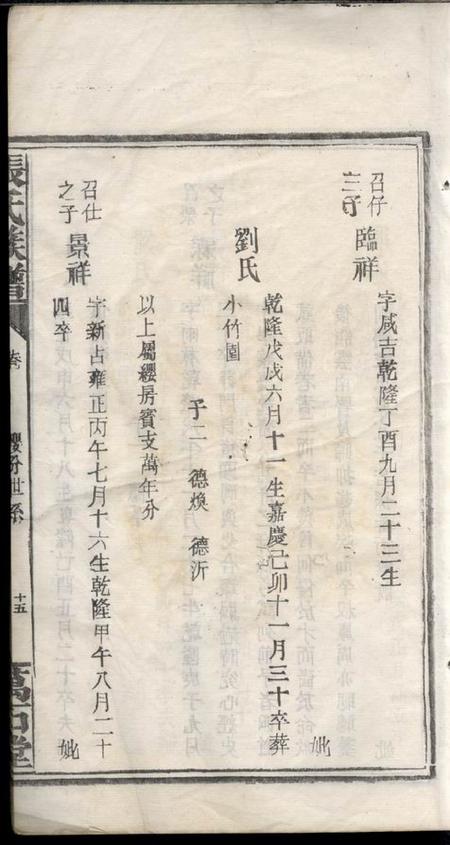 召仔
三子
臨祥
字咸吉乾隆丁酉九月二十三生
妣
劉氏
乾隆戊戌六月十一生嘉慶己卯十一月三十卒葬
小竹園
子二 德煥 德沂
以上屬纓房賓支萬年分
召仕
之子
景祥
字新占雍正丙午七月十六生乾隆甲午八月二十
四卒
妣
張氏族譜
卷
纓分世系
十五
萬石堂